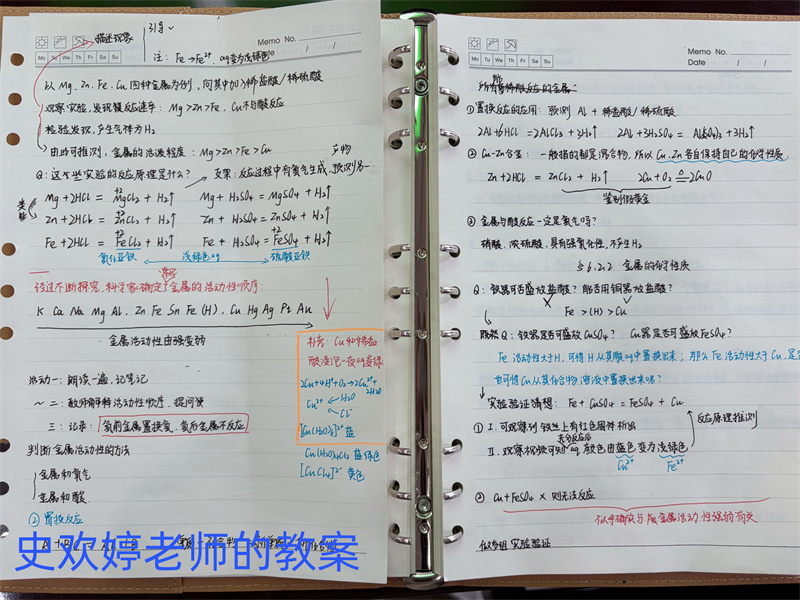 描述现象
引导
Memo No.
Mo Tu We Th Fr Sa Su
Date
注: Fe→Fe²⁺ aq变为浅绿色
以 Mg、Zn、Fe、Cu 四种金属为例,向其中加入稀盐酸/稀硫酸
观察实验,发现反应速率: Mg>Zn>Fe、Cu不与酸反应
检验发现,产生气体为H₂
由此可推测,金属的活泼程度: Mg>Zn>Fe>Cu
产物
Q: 这个实验的反应原理是什么? 支架: 反应过程中有氢气生成,预测另一
类能
Mg+2HCl = MgCl₂+H₂↑ Mg+H₂SO₄=MgSO₄+H₂↑
Zn+2HCl = ZnCl₂+H₂↑ Zn+H₂SO₄=ZnSO₄+H₂↑
Fe+2HCl = FeCl₂+H₂↑ Fe+H₂SO₄=FeSO₄+H₂↑
氯化亚铁 浅绿色aq 硫酸亚铁
经过不断探究,科学家确定了金属的活动性顺序:
K Ca Na Mg Al、Zn Fe Sn Pb (H)、Cu Hg Ag Pt Au
金属活动性由强变弱
补充: Cu和稀盐
酸浸泡一夜aq变绿
2Cu+4H⁺+O₂→2Cu²⁺+2H₂O
Cu²⁺ ←H₂O
←Cl⁻
[Cu(H₂O)₄]²⁺ 蓝
Cu(H₂O)₄Cl₂ 蓝绿色
[CuCl₄]²⁻ 黄色
活动一: 朗读一遍,记笔记
~二: 教师解释活动性顺序,提问
三: 记录: 氢前金属置换氢,氢后金属不反应
判断金属活动性的方法
金属和氧气
金属和酸
② 置换反应
史欢婷老师的教案
Memo No.
Mo Tu We Th Fr Sa Su
Date / /
能
所有与稀酸反应的金属:
① 置换反应的应用: 预测 Al+稀盐酸/稀硫酸
2Al+6HCl=2AlCl₃+3H₂↑ 2Al+3H₂SO₄=Al₂(SO₄)₃+3H₂↑
② Cu-Zn合金: 一般指的都是混合物,所以Cu、Zn各自保持自己的化学性质
Zn+2HCl=ZnCl₂+H₂↑ 2Cu+O₂=△=2CuO
鉴别假黄金
③ 金属与酸反应一定是氢气吗?
硝酸、浓硫酸,具有强氧化性,不产生H₂
§6.2.2 金属的化学性质
Q: 铁器可否盛放盐酸? 能否用铜器放盐酸?
Fe>(H)>Cu
既然Q: 铁器是否可盛放CuSO₄? Cu器是否可盛放FeSO₄?
Fe活动性大于H,可将H从其酸aq中置换出来; 那么Fe活动性大于Cu,是否
也可将Cu从其化合物溶液中置换出来呢?
实验验证猜想: Fe+CuSO₄=FeSO₄+Cu
反应原理推测
① Ⅰ. 可观察到铁丝上有红色固体析出
充分反应后
Ⅱ. 观察 aq颜色由蓝色变为浅绿色
Cu²⁺ Fe²⁺
② Cu+FeSO₄ × 则无法反应
实验验证